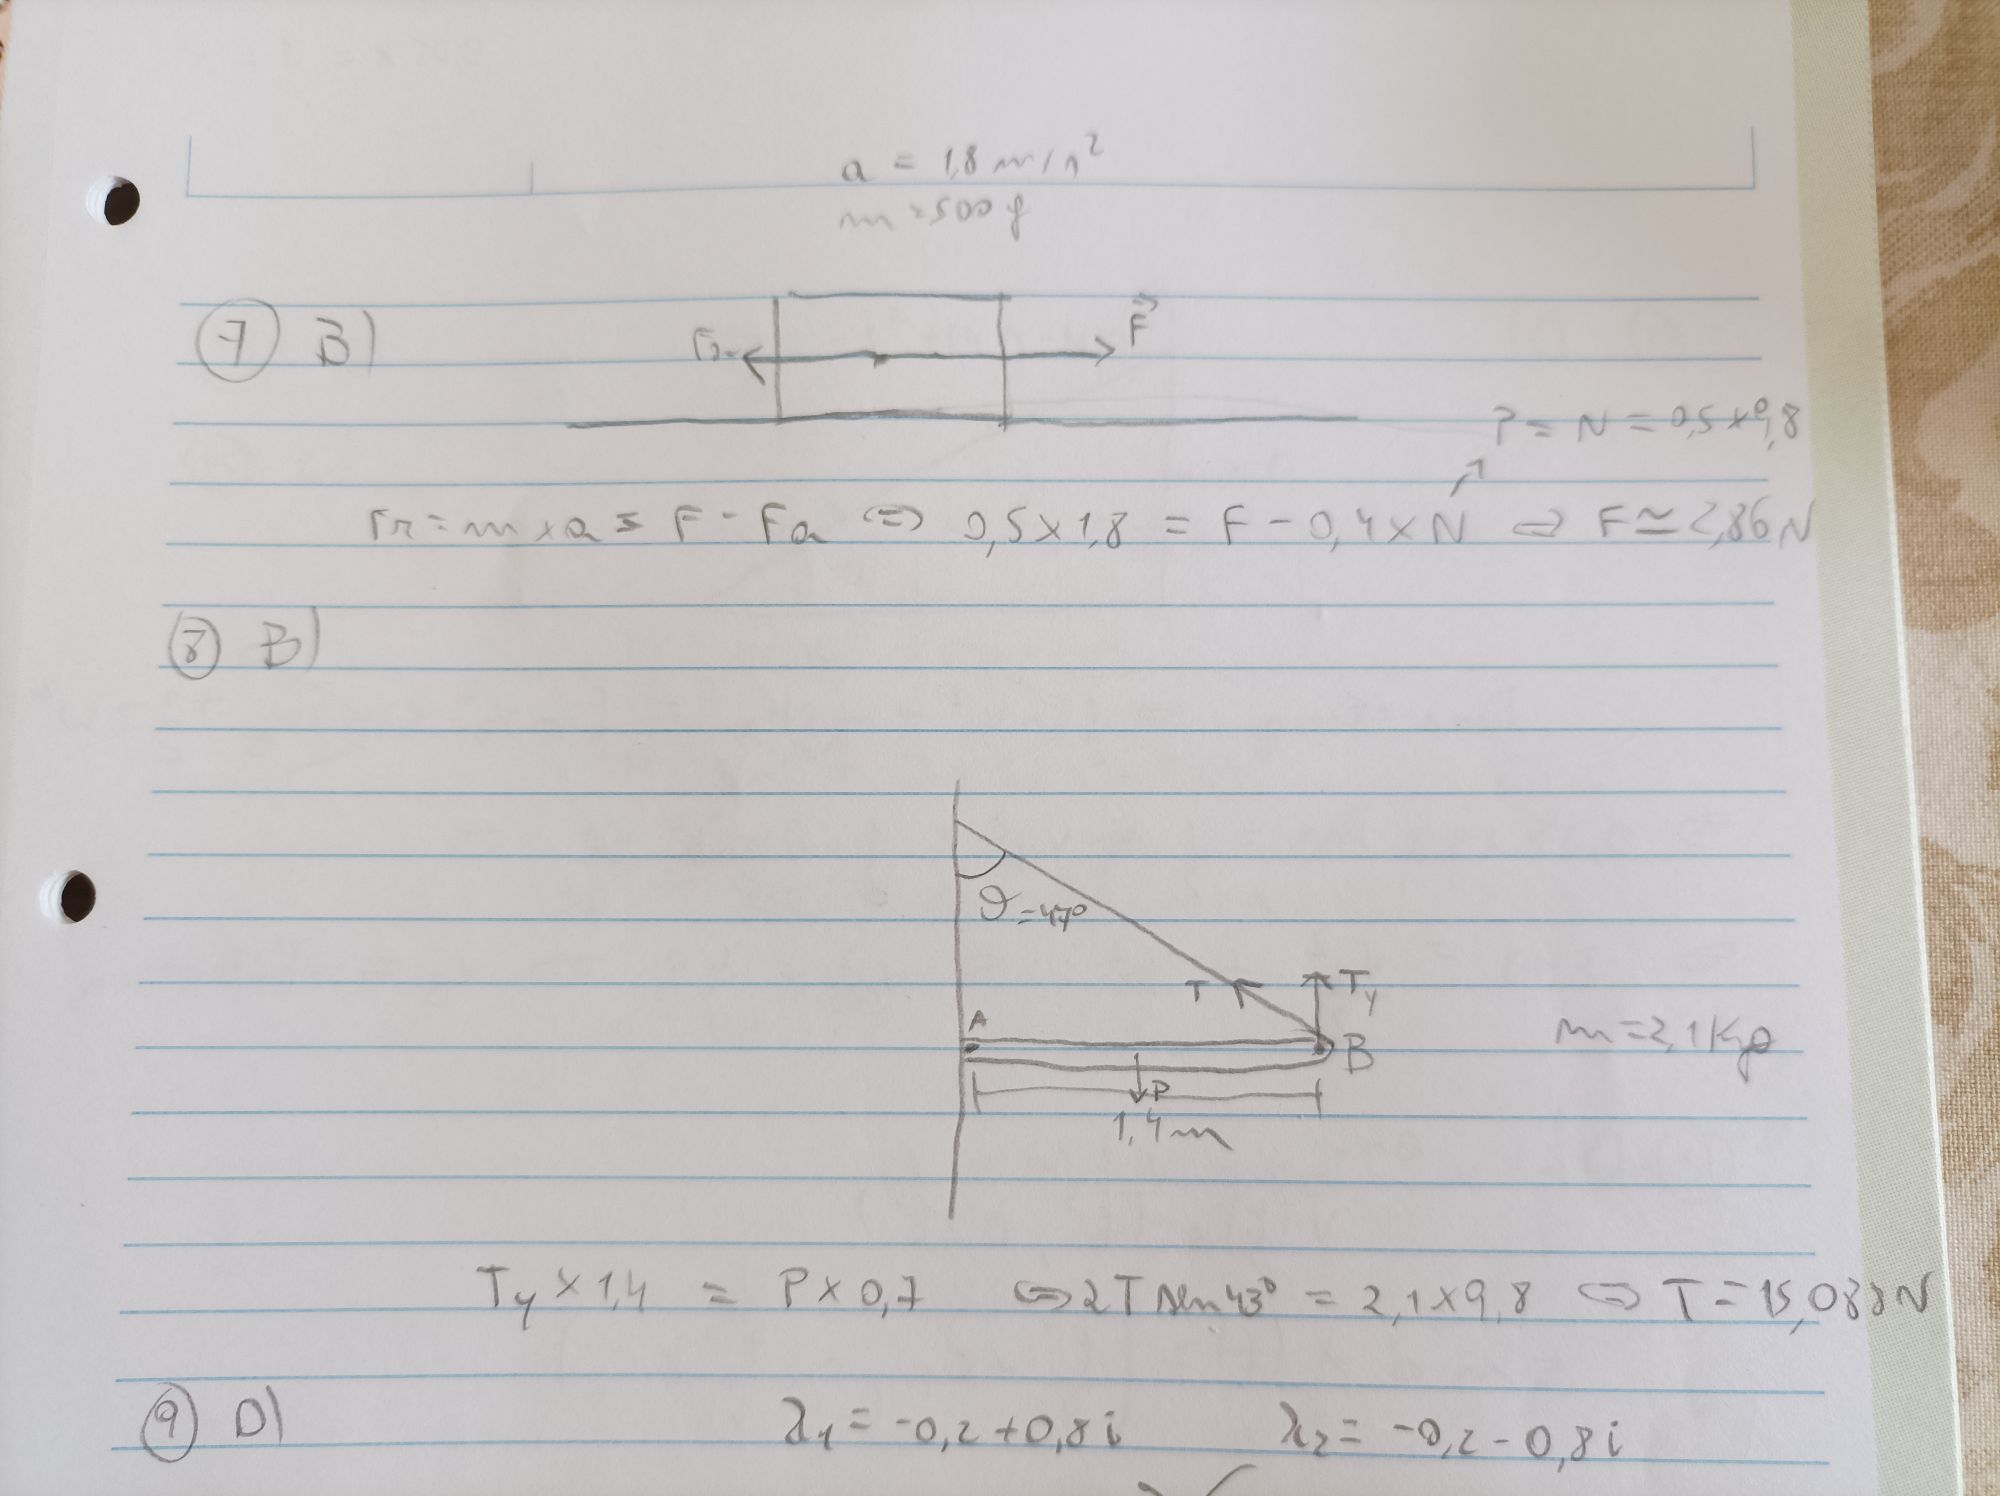 a = 1,8 m/s²
m = 500 g
7 B)
F
P = N = 0,5 × 9,8
Fr = m × a = F - Fa ⇔ 0,5 × 1,8 = F - 0,4 × N ⇔ F ≃ 2,86 N
8 B)
θ = 47°
T Ty
A
B m = 2,1 Kg
P
1,4 m
Ty × 1,4 = P × 0,7 ⇔ 2 T sen 43° = 2,1 × 9,8 ⇔ T = 15,088 N
9 D) λ1 = -0,2 + 0,8 i λ2 = -0,2 - 0,8 i